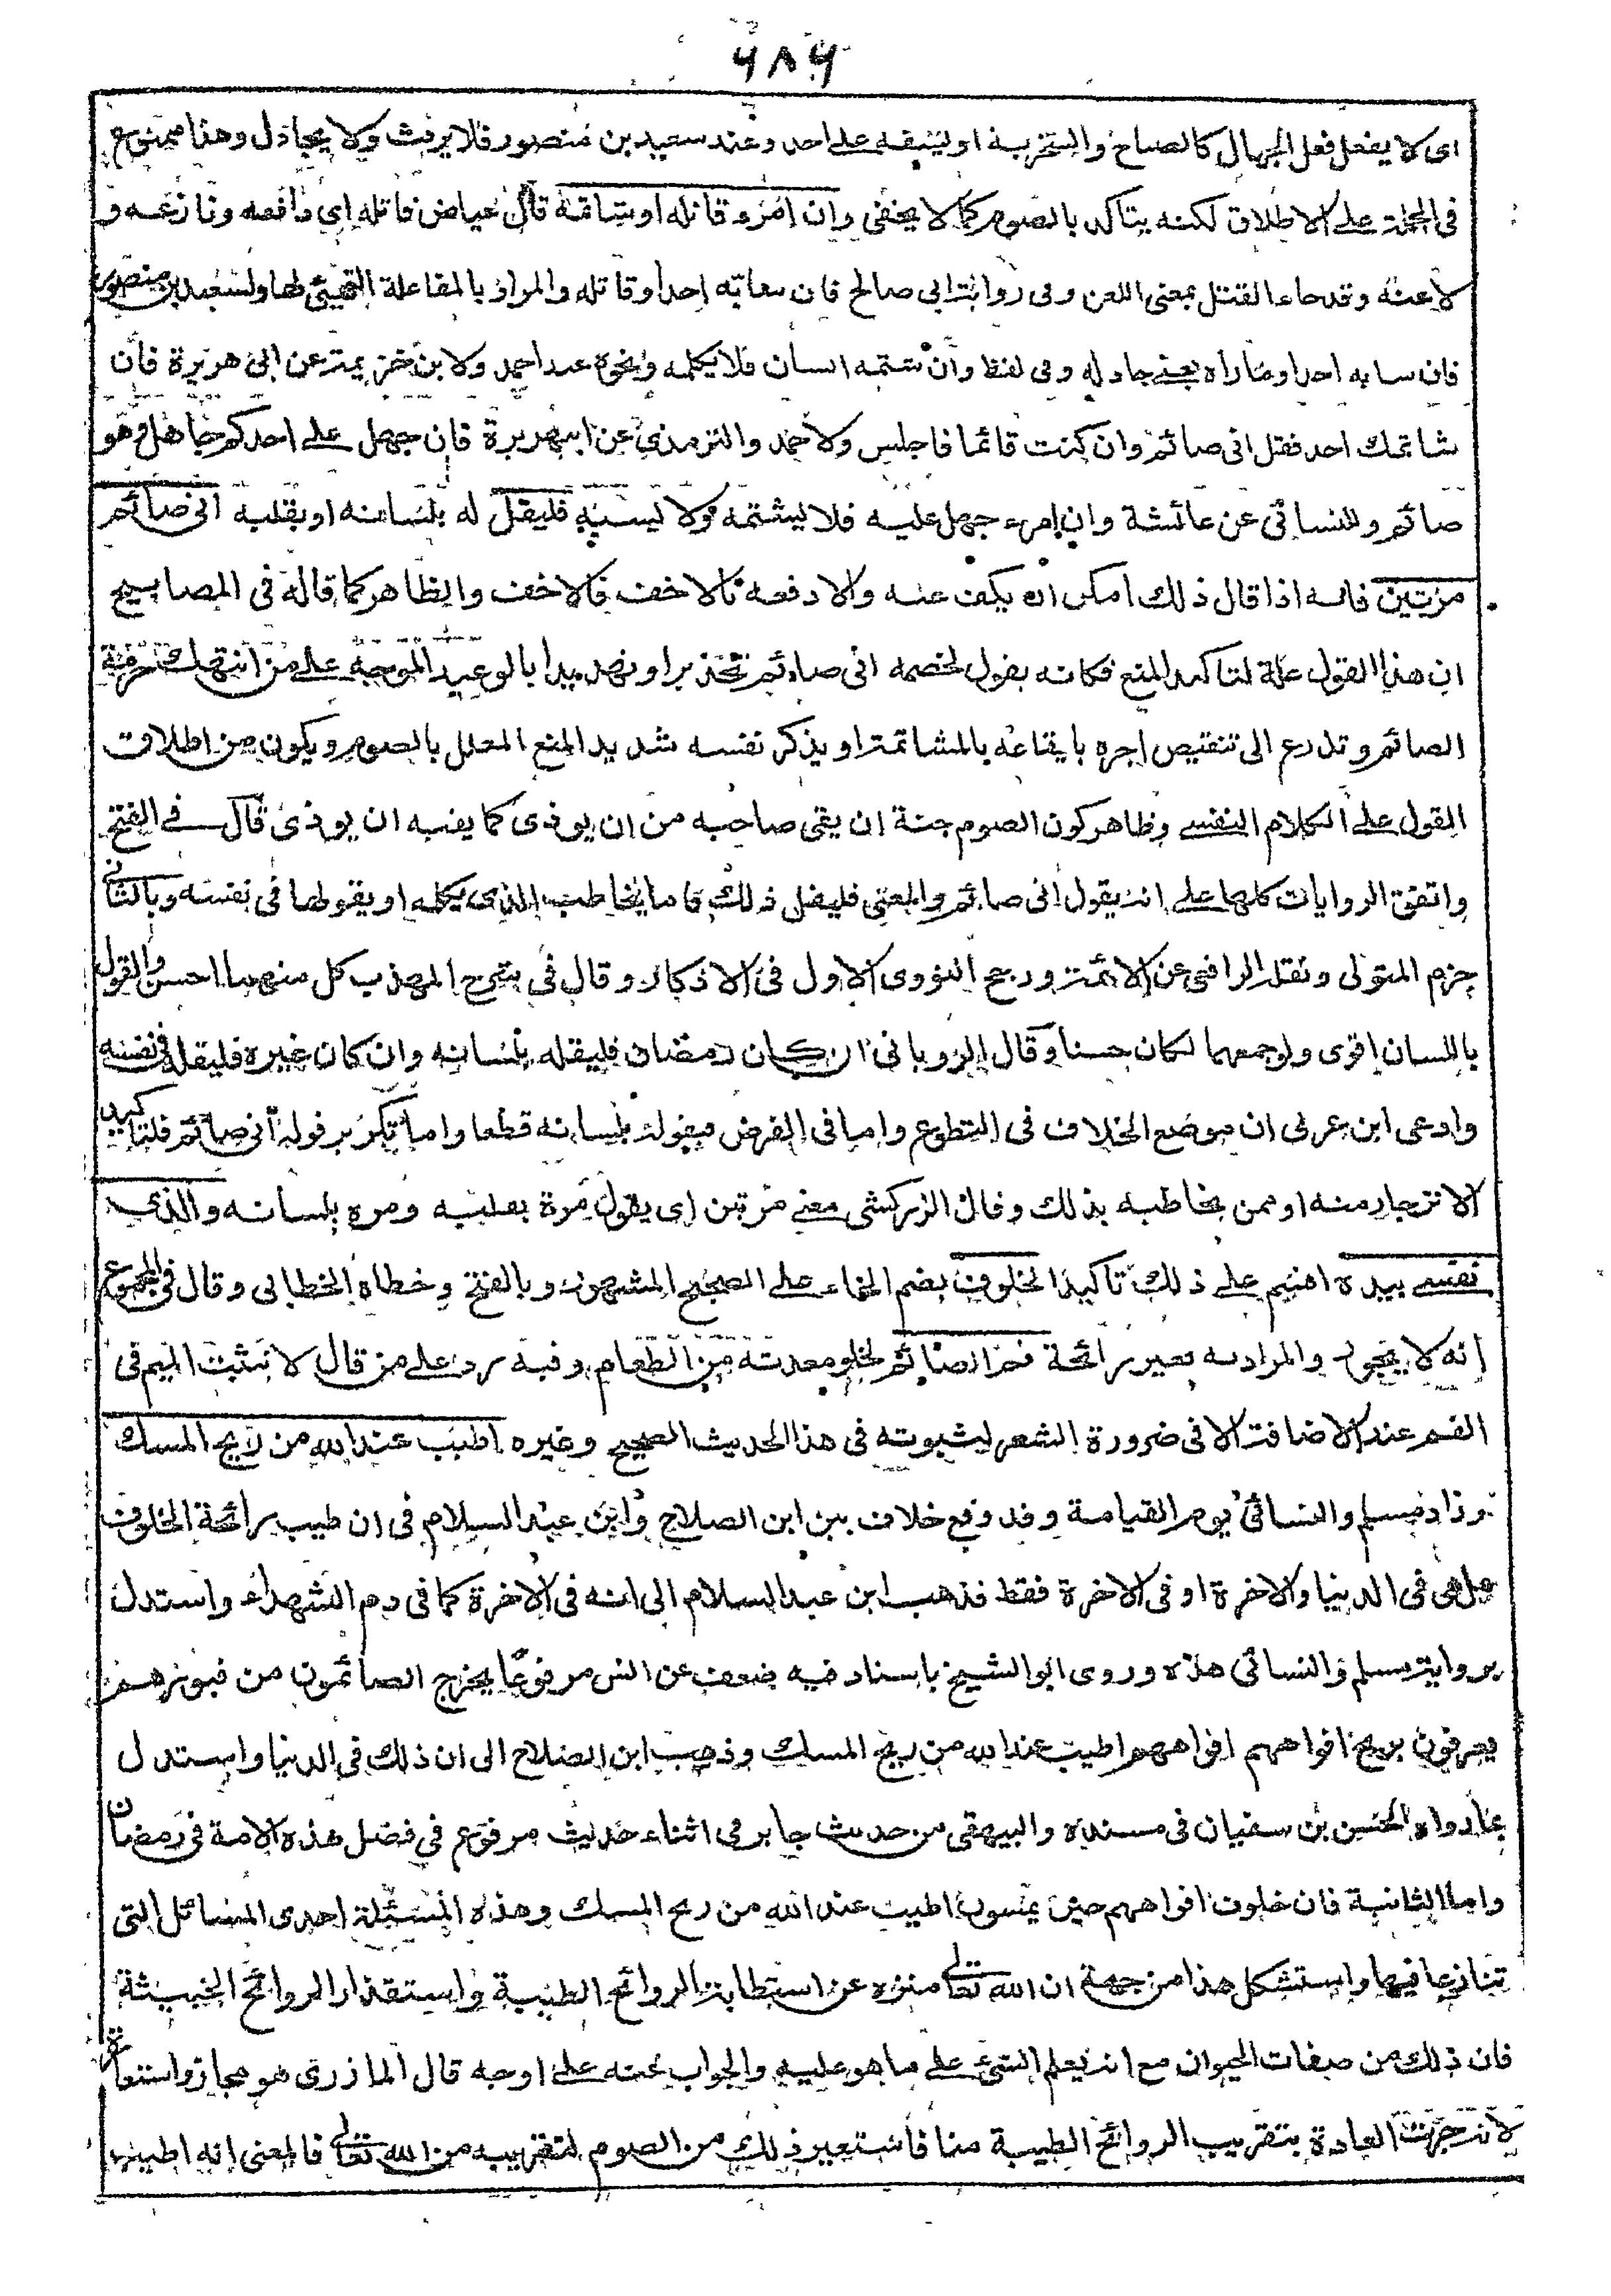 ٦٨٦
اى لا يفعل فعل الجهال كالصياح والسخرية او ليسفه على احد وعند سعيد بن منصور فلا يرفث ولا يجادل وهذا ممنوع
فى الجملة على الاطلاق لكنه يتاكد بالصوم كما لا يخفى وان امرء قاتله او شاتمه قال عياض قاتله اى دافعه ونازعه و
لاعنه وقد جاء القتل بمعنى اللعن وفى رواية ابى صالح فان سابه احد او قاتله والمراد بالمفاعلة التهيئ لها ولسعيد بن منصور
فان سابه احد او ماراه يعنى جادله وفى لفظ وان شتمه انسان فلا يكلمه ونحوه عند احمد ولابن خزيمة عن ابى هريرة فان
شاتمك احد فقل انى صائم وان كنت قائما فاجلس ولاحمد والترمذى عن ابيهريرة فان جهل على احدكم جاهل وهو
صائم وللنسائى عن عائشة وان امرء جهل عليه فلا يشتمه ولا يسبه فليقل له بلسانه او بقلبه انى صائم
مرتين فانه اذا قال ذلك امكن انه يكف عنه والا دفعه بالاخف فالاخف والظاهر كما قاله فى المصابيح
ان هذا القول علة لتاكيد المنع فكانه يقول لخصمه انى صائم تحذيرا وتهديدا بالوعيد الموجه على من انتهك حرمة
الصائم وتدرع الى تنقيص اجره بايقاعه بالمشاتمة او يذكر نفسه شديد المنع المعلل بالصوم ويكون من اطلاق
القول على الكلام النفسى وظاهر كون الصوم جنة ان يقى صاحبه من ان يوذى كما يقيه ان يوذى قال فى الفتح
واتفق الروايات كلها على انه يقول انى صائم والمعنى فليقل ذلك قاما يخاطب الذى يكلمه او يقولها فى نفسه وبالثانى
جزم المتولى ونقله الرافعى عن الائمة ورجح النووى الاول فى الاذكار وقال فى شرح المهذب كل منهما احسن والقول
باللسان اقوى ولو جمعهما لكان حسنا وقال الرويانى ان كان رمضان فليقله بلسانه وان كان غيره فليقله فى نفسه
وادعى ابن عربى ان موضع الخلاف فى التطوع واما فى الفرض فيقوله بلسانه قطعا واما تكرير قوله انى صائم فلتاكيد
الانزجار منه او ممن يخاطبه بذلك وقال الزركشى معنى مرتين اى يقول مرة بقلبه ومرة بلسانه والذى
نفسى بيده اقسم على ذلك تاكيدا لخلوف بضم الخاء على الصحيح المشهور وبالفتح وخطاه الخطابى وقال فى المجموع
انه لا يجوز والمراد به تغير رائحة فم الصائم لخلو معدته من الطعام وفيه رد على من قال لا تثبت الميم فى
الفم عند الاضافة الا فى ضرورة الشعر لثبوته فى هذا الحديث الصحيح وغيره اطيب عند الله من ريح المسك
وزاد مسلم والنسائى يوم القيامة وقد وقع خلاف بين ابن الصلاح وابن عبد السلام فى ان طيب رائحة الخلوف
هل هى فى الدنيا والاخرة او فى الاخرة فقط فذهب ابن عبد السلام الى انه فى الاخرة كما فى دم الشهداء واستدل
برواية مسلم والنسائى هذه وروى ابو الشيخ باسناد فيه ضعف عن انس مرفوعا يخرج الصائمون من قبورهم
يعرفون بريح افواههم افواههم اطيب عند الله من ريح المسك وذهب ابن الصلاح الى ان ذلك فى الدنيا واستدل
بما رواه الحسن بن سفيان فى مسنده والبيهقى من حديث جابر فى اثناء حديث مرفوع فى فضل هذه الامة فى رمضان
واما الثانية فان خلوف افواههم حين يمسون اطيب عند الله من ريح المسك وهذه المسئلة احدى المسائل التى
تنازعا فيها واستشكل هذا من جهة ان الله تعالى منزه عن استطابة الروائح الطيبة واستقذار الروائح الخبيثة
فان ذلك من صفات الحيوان مع انه يعلم الشئ على ما هو عليه والجواب عنه على اوجه قال المازرى هو مجاز واستعارة
لانه جرت العادة بتقريب الروائح الطيبة منا فاستعير ذلك من الصوم لتقريبه من الله تعالى فالمعنى انه اطيب